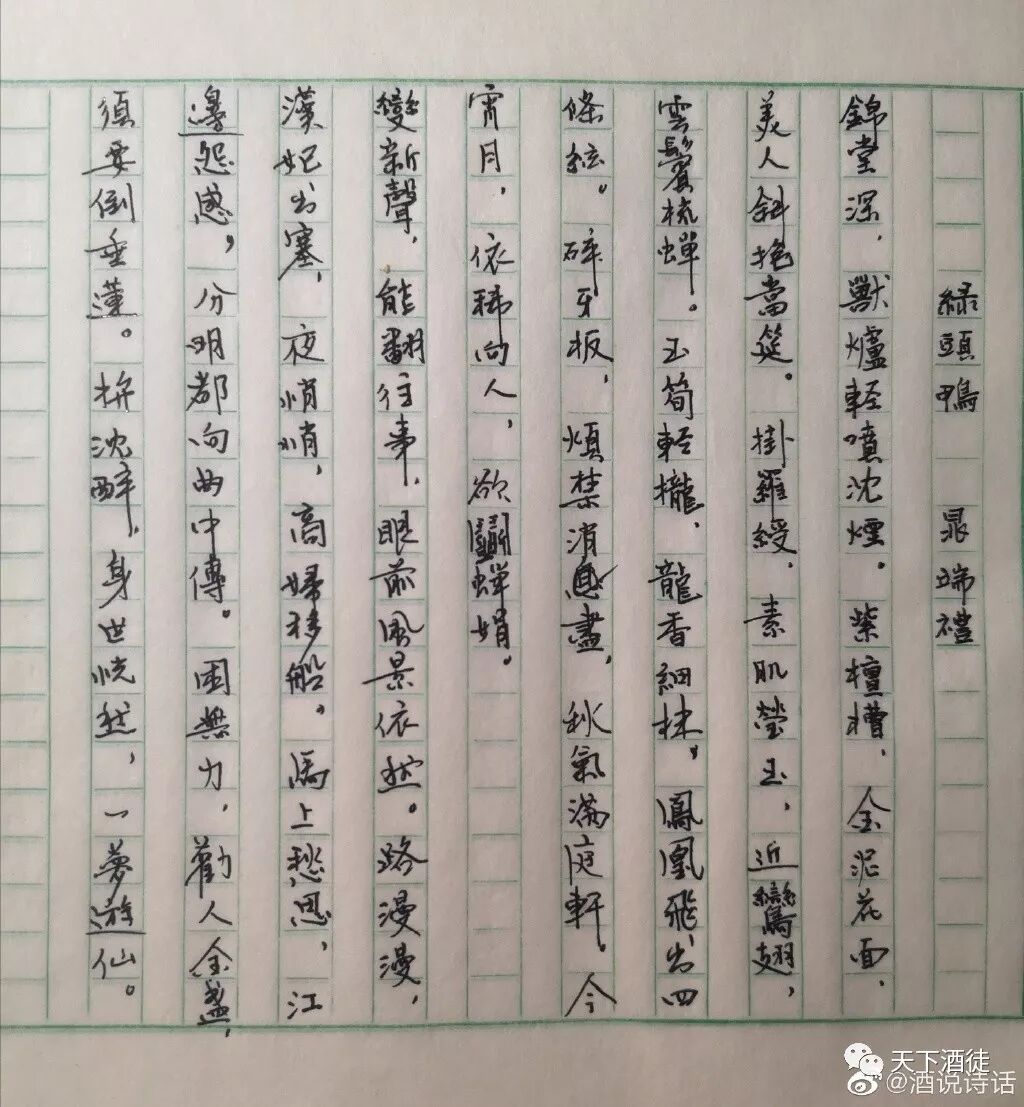 綠頭鴨　晁端禮
錦堂深，獸爐輕噴沈煙。紫檀槽，金泥花面，
美人斜抱當筵。掛羅綬，素肌瑩玉，近鸞翅，
雲鬢梳蟬。玉筍輕攏，龍香細抹，鳳凰飛出四
條絃。碎牙板，煩襟消息盡，秋氣滿庭軒。今
宵月，依稀向人，欲鬬蟬娟。
變新聲，能翻往事，眼前風景依然。路漫漫，
漢妃出塞，夜悄悄，商婦移船。馬上愁思，江
邊怨感，分明都向曲中傳。困無力，勸人金盞，
須要倒垂蓮。拚沈醉，身世恍然，一夢遊仙。
天下酒徒
@酒说诗话